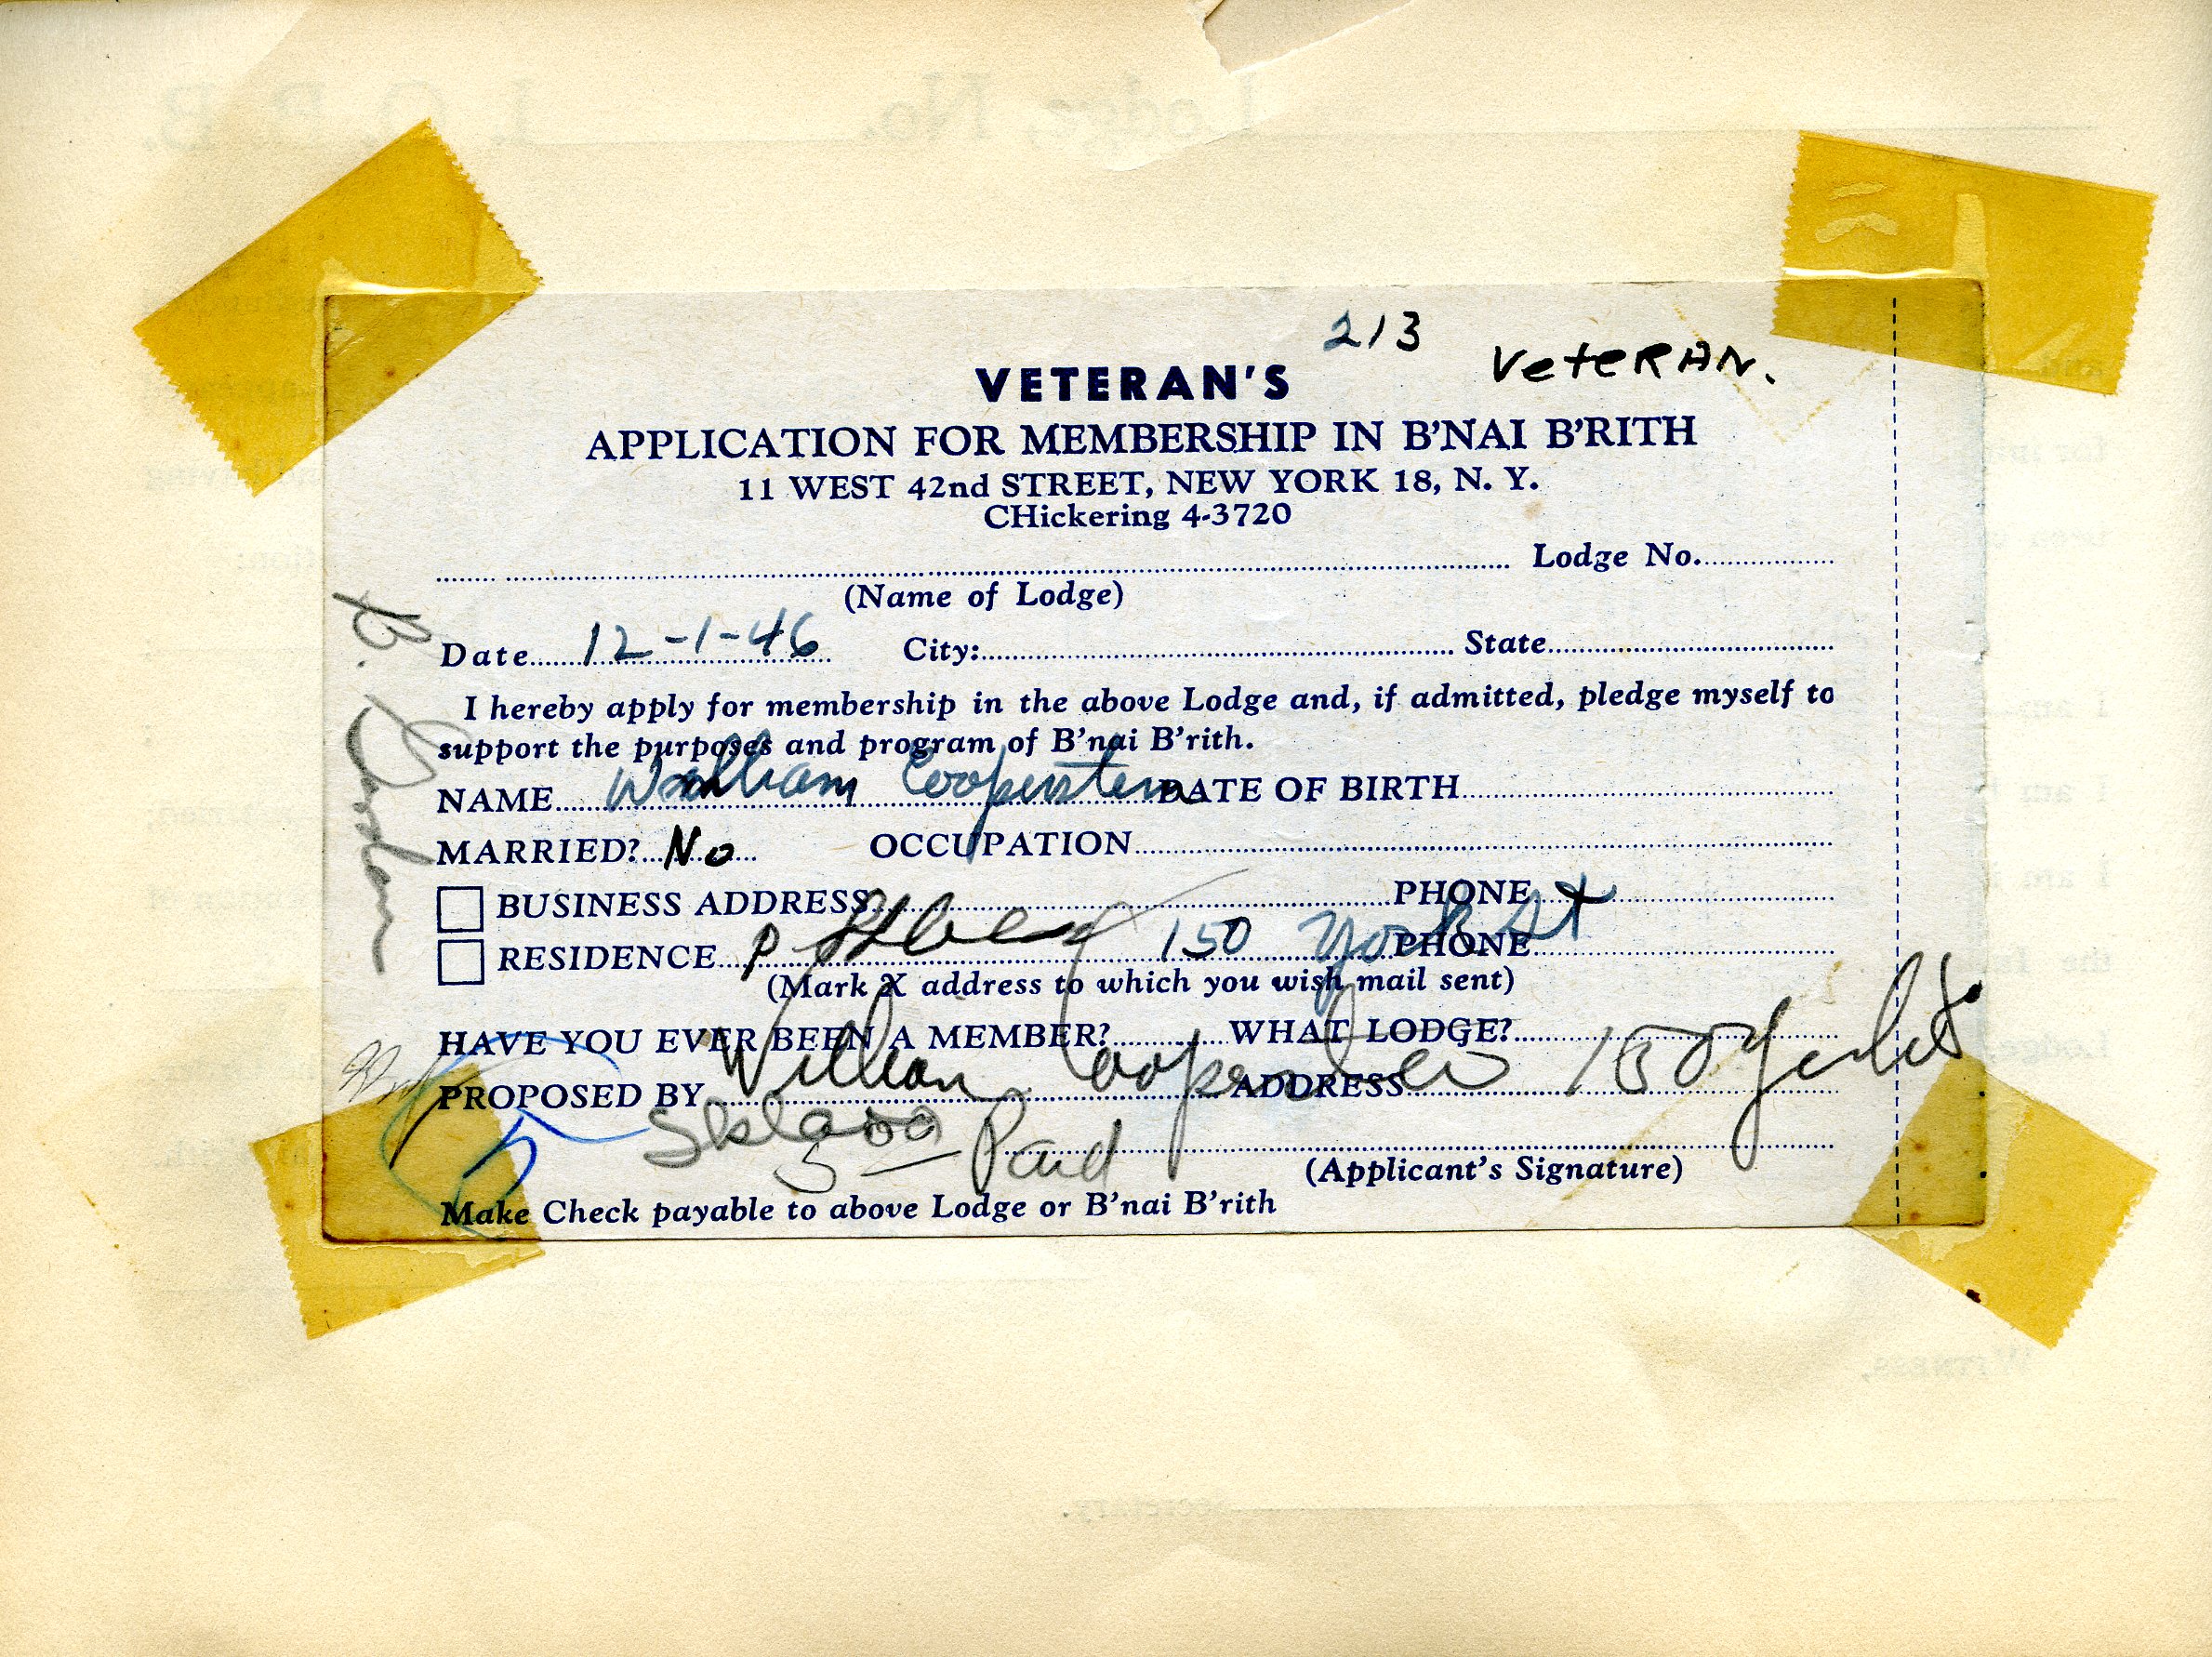 213 VeteRAN.
VETERAN'S
APPLICATION FOR MEMBERSHIP IN B'NAI B'RITH
11 WEST 42nd STREET, NEW YORK 18, N. Y.
CHickering 4-3720
Lodge No.
(Name of Lodge)
Date 12-1-46 City: State
I hereby apply for membership in the above Lodge and, if admitted, pledge myself to
support the purposes and program of B'nai B'rith.
NAME William Cooperstein DATE OF BIRTH
MARRIED? No OCCUPATION
BUSINESS ADDRESS PHONE
RESIDENCE 150 York St PHONE
(Mark X address to which you wish mail sent)
HAVE YOU EVER BEEN A MEMBER? WHAT LODGE?
William Cooperstein 150 York St
PROPOSED BY ADDRESS
5 — Paid
(Applicant's Signature)
Make Check payable to above Lodge or B'nai B'rith
B.
Lodge, No. I. O. B. B.
WITNESS,